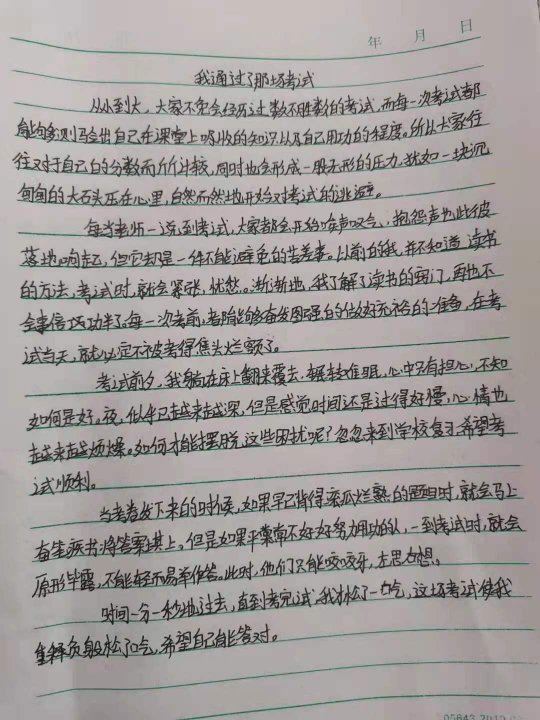 年 月 日
我通过了那场考试
从小到大，大家不免会经历过数不胜数的考试，而每一次考试都
能够测验出自己在课堂上吸收的知识以及自己用功的程度。所以大家往
往对于自己的分数而斤斤计较，同时也会形成一股无形的压力，犹如一块沉
甸甸的大石头压在心里，自然而然地开始对考试的逃避。
每当老师一说到考试，大家都会开始唉声叹气，抱怨声也此彼
落地响起，但它却是一件不能避免的苦差事。以前的我，并不知道读书
的方法，考试时，就会紧张，忧愁。渐渐地，我了解了读书的窍门，再也不
会事倍功半了。每一次考前，都能够奋发图强的做好充裕的准备，在考
试当天，就必定不被考得焦头烂额了。
考试前夕，我躺在床上翻来覆去，辗转难眠，心中只有担心，不知
如何是好。夜，似乎已越来越深，但是感觉时间还是过得好慢，心情也
越来越烦燥。如何才能摆脱这些困扰呢？忽忽来到学校复习，希望考
试顺利。
当考卷发下来的时候，如果早已背得滚瓜烂熟的题目时，就会马上
奋笔疾书将答案填上。但是如果平常常不好好努力用功的人，一到考试时，就会
原形毕露，不能轻而易举作答。此时，他们只能咬咬牙，左思右想。
时间一分一秒地过去，直到考完试，我才松了一口气，这场考试使我
如释负般松了口气，希望自己能答对。